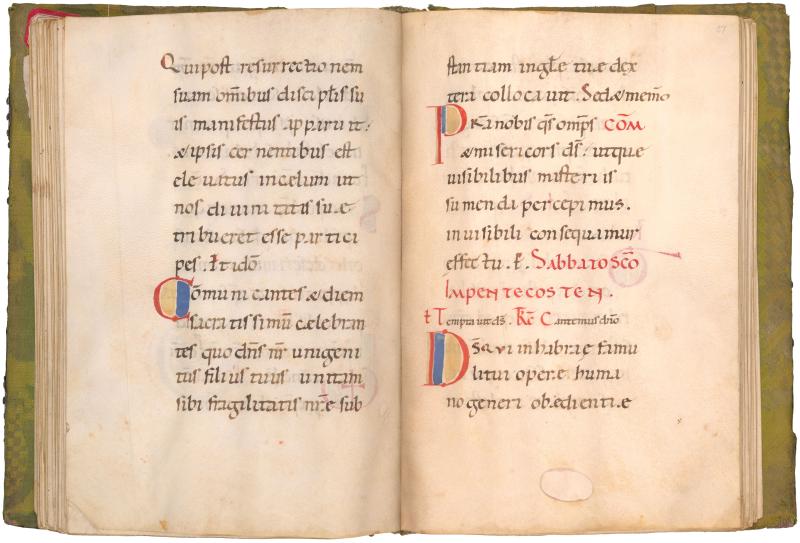 Qui post resurrectionem
suam omībus discipłis su
is manifestus apparuit:
& ipsis cernentibus est
eleuatus incelum ut
nos diuinitatis suę
tribueret esse partici
pes. Et idō
Cōmunicantes & diem
sacratissimū cælebran
tes quo dñs nr̄ unigeni
tus filius tuus unitam
sibi fragilitatis nr̄ę sub
stantiam inglę tuę dex
tera collocauit. Sed & memō
Pr̄a nobis qs omps COM̄
& misericors dš. ut que
uisibilibus misteriis
sumenda percepimus.
inuisibili consequamur
effectu. ꝑ. Sabbato sc̄o
IMPENTECOSTEN.
Temptauit dš. R̄ Cantemus dño
Dš qui inhabrae famu
li tui opere huma
no generi obędientię